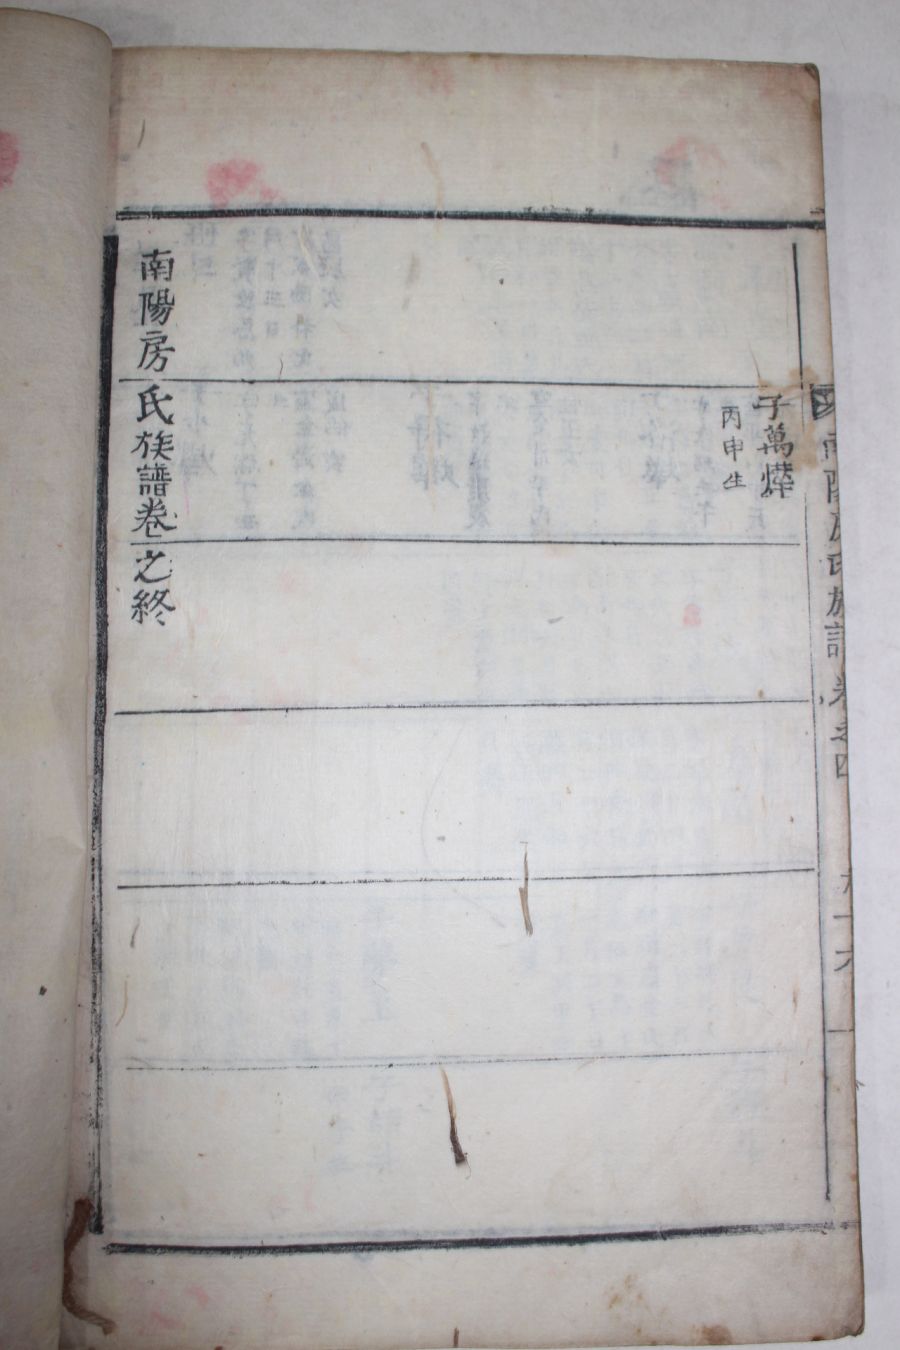 南陽房氏族譜卷之四
子萬燁
丙申生
南陽房氏族譜卷之終